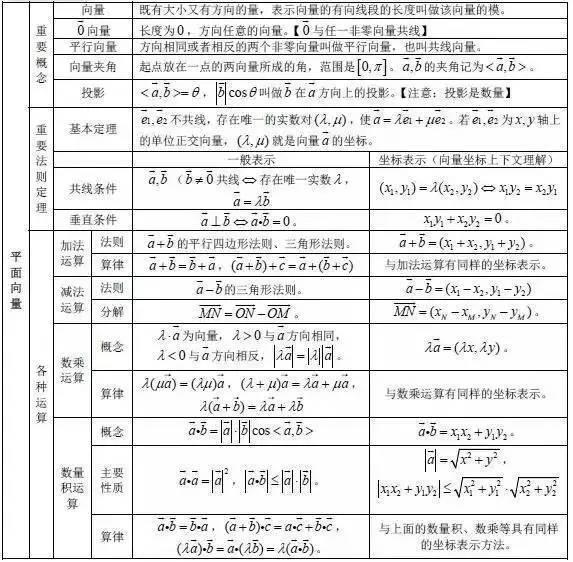 平面向量
重要概念
向量
既有大小又有方向的量，表示向量的有向线段的长度叫做该向量的模。
0⃗向量
长度为0，方向任意的向量。【0⃗与任一非零向量共线】
平行向量
方向相同或者相反的两个非零向量叫做平行向量，也叫共线向量。
向量夹角
起点放在一点的两向量所成的角，范围是[0,π]。a⃗,b⃗的夹角记为<a⃗,b⃗>。
投影
<a⃗,b⃗>=θ，|b⃗|cosθ叫做b⃗在a⃗方向上的投影。【注意：投影是数量】
重要法则定理
基本定理
e⃗₁,e⃗₂不共线，存在唯一的实数对(λ,μ)，使a⃗=λe⃗₁+μe⃗₂。若e⃗₁,e⃗₂为x,y轴上
的单位正交向量，(λ,μ)就是向量a⃗的坐标。
一般表示
坐标表示（向量坐标上下文理解）
共线条件
a⃗,b⃗（b⃗≠0⃗共线⇔存在唯一实数λ，
a⃗=λb⃗
(x₁,y₁)=λ(x₂,y₂)⇔x₁y₂=x₂y₁
垂直条件
a⃗⊥b⃗⇔a⃗•b⃗=0。
x₁y₁+x₂y₂=0。
各种运算
加法运算
法则
a⃗+b⃗的平行四边形法则、三角形法则。
a⃗+b⃗=(x₁+x₂,y₁+y₂)。
算律
a⃗+b⃗=b⃗+a⃗，(a⃗+b⃗)+c⃗=a⃗+(b⃗+c⃗)
与加法运算有同样的坐标表示。
减法运算
法则
a⃗−b⃗的三角形法则。
a⃗−b⃗=(x₁−x₂,y₁−y₂)
分解
MN⃗=ON⃗−OM⃗。
MN⃗=(x_N−x_M,y_N−y_M)。
数乘运算
概念
λ·a⃗为向量，λ>0与a⃗方向相同，
λ<0与a⃗方向相反，|λa⃗|=|λ||a⃗|。
λa⃗=(λx,λy)。
算律
λ(μa⃗)=(λμ)a⃗，(λ+μ)a⃗=λa⃗+μa⃗，
λ(a⃗+b⃗)=λa⃗+λb⃗
与数乘运算有同样的坐标表示。
数量积运算
概念
a⃗•b⃗=|a⃗|·|b⃗|cos<a⃗,b⃗>
a⃗•b⃗=x₁x₂+y₁y₂。
主要性质
a⃗•a⃗=|a⃗|²，|a⃗•b⃗|≤|a⃗|·|b⃗|。
|a⃗|=√(x²+y²)，
|x₁x₂+y₁y₂|≤√(x₁²+y₁²)·√(x₂²+y₂²)
算律
a⃗•b⃗=b⃗•a⃗，(a⃗+b⃗)•c⃗=a⃗•c⃗+b⃗•c⃗，
(λa⃗)•b⃗=a⃗•(λb⃗)=λ(a⃗•b⃗)。
与上面的数量积、数乘等具有同样
的坐标表示方法。